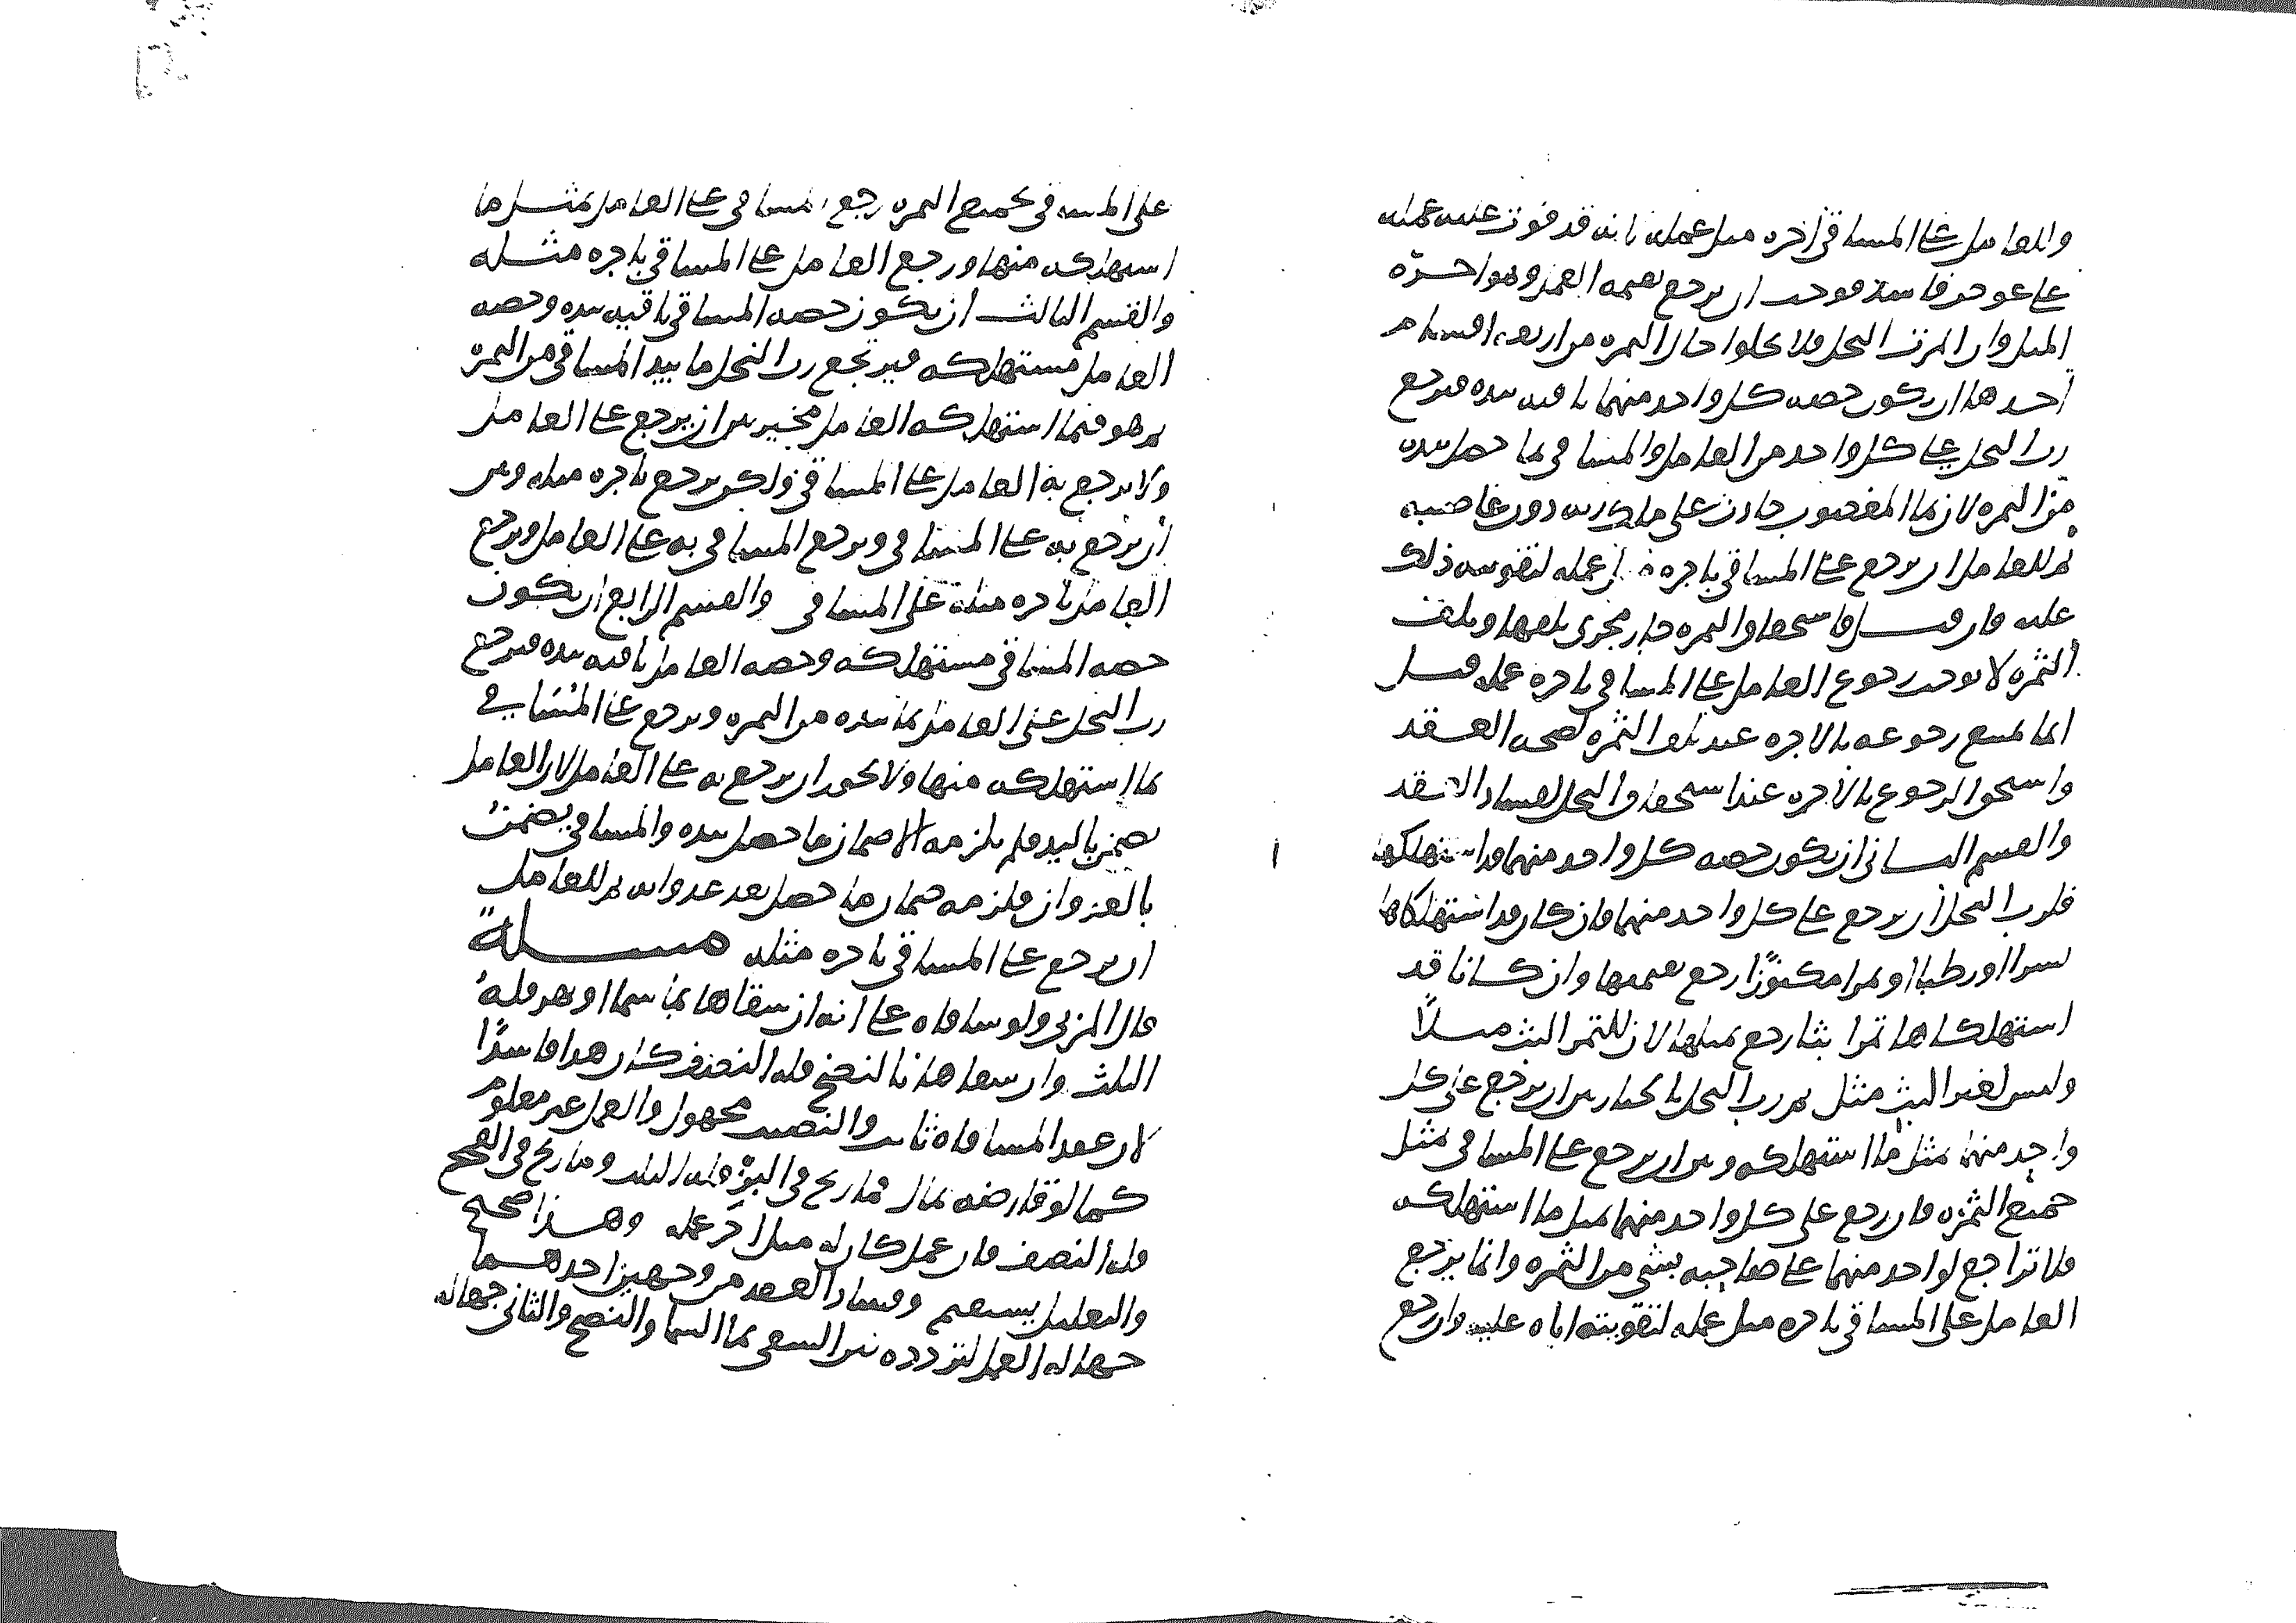 وللعامل على المساقي اجره مثل عمله لانه قد فوت عليه عمله
على عوض فاسد فوجب ان يرجع بقيمه العمل وهو اجره
المثل وان اثمرت النخل فلا يخلوا حال الثمره من اربعه اقسام
احدها ان يكون حصه كل واحد منهما باقيه بيده فيرجع
رب النخل على كل واحد من العامل والمساقي بما حصل بيده
من الثمره لان نما المغصوب حادث على ملك ربه دون غاصبه
ثم للعامل ان يرجع على المساقي باجره مثل عمله لتفويته ذلك
عليه فان قيل فاستحقاق الثمره جار مجرى تلفها وتلف
الثمره لا يوجب رجوع العامل على المساقي باجره عمله قيل
انما يمنع رجوعه بالاجره عند تلف الثمره لصحه العقد
واستحق الرجوع بالاجره عند استحقاق النخل لفساد العقد
والقسم الثاني ان يكون حصه كل واحد منهما قد استهلكها
فلرب النخل ان يرجع على كل واحد منهما فان كان قد استهلكاها
بسرا او رطبا او تمرا مكنوزا رجع بقيمتها وان كانا قد
استهلكاها تمرا بثا رجع بمثلها لان للتمر البث مثلا
وليس لغير البث مثل ثم رب النخل بالخيار بين ان يرجع على كل
واحد منهما بمثل ما استهلكه وبين ان يرجع على المساقي بمثل
جميع الثمره فان رجع على كل واحد منهما بمثل ما استهلكه
فلا تراجع لواحد منهما على صاحبه بشي من الثمره وانما يرجع
العامل على المساقي باجره مثل عمله لتفويته اياه عليه وان رجع
على المساقي بجميع الثمره رجع المساقي على العامل بمثل ما
استهلكه منها ورجع العامل على المساقي باجره مثله
والقسم الثالث ان يكون حصه المساقي باقيه بيده وحصه
العامل مستهلكه فيرتجع رب النخل ما بيد المساقي من الثمره
ثم هو فيما استهلكه العامل مخير بين ان يرجع على العامل
ولا يرجع به العامل على المساقي ولكن يرجع باجره مثله وبين
ان يرجع به على المساقي ويرجع المساقي به على العامل ويرجع
العامل باجره مثله على المساقي والقسم الرابع ان يكون
حصه المساقي مستهلكه وحصه العامل باقيه بيده فيرجع
رب النخل على العامل بما بيده من الثمره ويرجع على المساقي
بما استهلكه منها ولا يجوز ان يرجع به على العامل لان العامل
يضمن باليد فلم يلزمه الا ضمان ما حصل بيده والمساقي يضمن
بالعدوان فلزمه ضمان ما حصل بعد عدوانه ثم للعامل
ان يرجع على المساقي باجره مثله مسلة
قال المزني ولو ساقاه على انه ان سقاها بما سما او نهر فله
الثلث وان سقاها بالنضح فله النصف كان هذا فاسدا
لان عقد المساقاه ثابت والنصيب مجهول والعمل غير معلوم
كما لو قارضه بمال فما ربح في البز فله الثلث وما ربح في القمح
فله النصف فان عمل كان له مثل اجر عمله وهذا صحيح
والتعليل يستقيم وفساد العقد من وجهين احدهما
جهاله العمل لتردده بين السقي بما السما والنضح والثاني جهاله